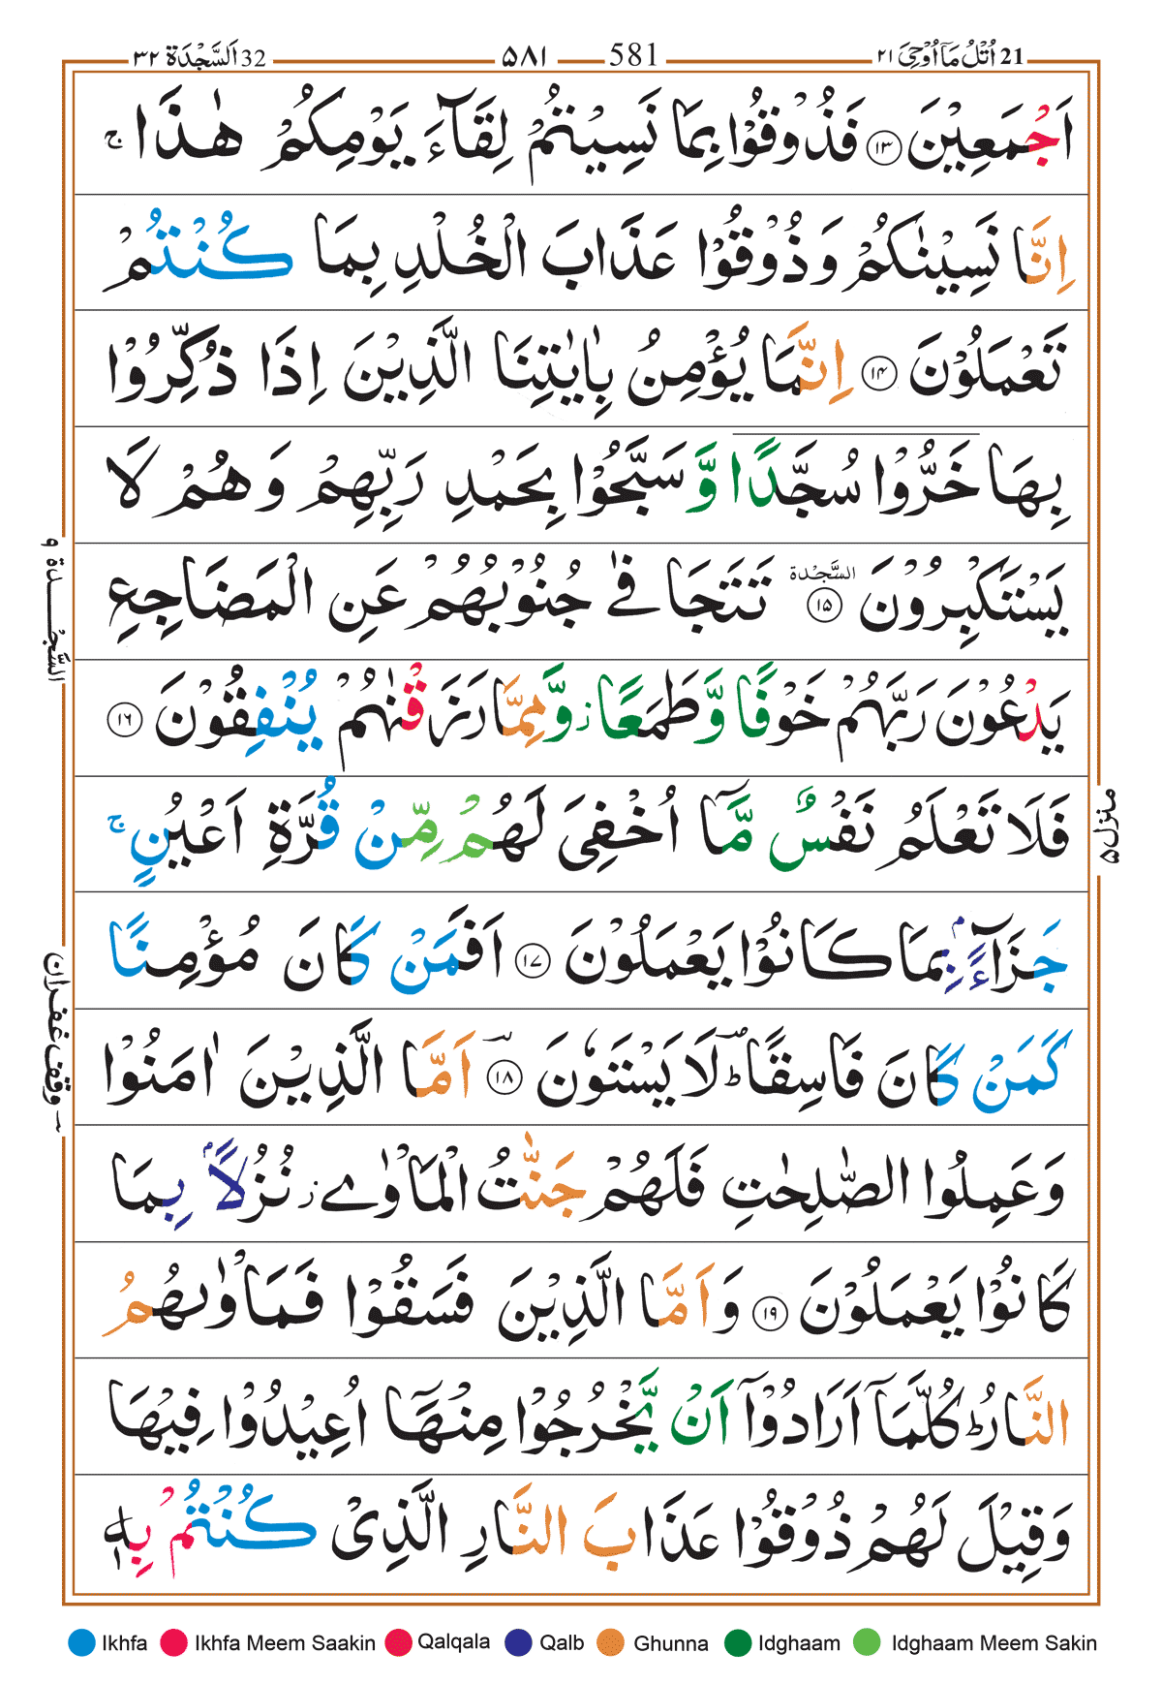 32 اَلسَّجْدَة ٣٢
581 ۵۸۱
21 اُتْلُ مَآ اُوْحِیَ ٢١
اَجْمَعِيْنَ ١٣ فَذُوْقُوْا بِمَا نَسِيْتُمْ لِقَآءَ يَوْمِكُمْ هٰذَا ۚ
اِنَّا نَسِيْنٰكُمْ وَذُوْقُوْا عَذَابَ الْخُلْدِ بِمَا كُنْتُمْ
تَعْمَلُوْنَ ١٤ اِنَّمَا يُؤْمِنُ بِاٰيٰتِنَا الَّذِيْنَ اِذَا ذُكِّرُوْا
بِهَا خَرُّوْا سُجَّدًا وَّ سَبَّحُوْا بِحَمْدِ رَبِّهِمْ وَهُمْ لَا
يَسْتَكْبِرُوْنَ ١٥ السَّجْدَة تَتَجَافٰى جُنُوْبُهُمْ عَنِ الْمَضَاجِعِ
يَدْعُوْنَ رَبَّهُمْ خَوْفًا وَّطَمَعًا ز وَّمِمَّا رَزَقْنٰهُمْ يُنْفِقُوْنَ ١٦
فَلَا تَعْلَمُ نَفْسٌ مَّآ اُخْفِىَ لَهُمْ مِّنْ قُرَّةِ اَعْيُنٍ ۚ
جَزَآءًۢ بِمَا كَانُوْا يَعْمَلُوْنَ ١٧ اَفَمَنْ كَانَ مُؤْمِنًا
كَمَنْ كَانَ فَاسِقًا ؕ لَا يَسْتَوٗنَ ١٨ اَمَّا الَّذِيْنَ اٰمَنُوْا
وَعَمِلُوا الصّٰلِحٰتِ فَلَهُمْ جَنّٰتُ الْمَاْوٰى ز نُزُلًاۢ بِمَا
كَانُوْا يَعْمَلُوْنَ ١٩ وَاَمَّا الَّذِيْنَ فَسَقُوْا فَمَاْوٰىهُمُ
النَّارُ ؕ كُلَّمَآ اَرَادُوْۤا اَنْ يَّخْرُجُوْا مِنْهَآ اُعِيْدُوْا فِيْهَا
وَقِيْلَ لَهُمْ ذُوْقُوْا عَذَابَ النَّارِ الَّذِىْ كُنْتُمْ بِهٖ
السَّجْدَة ٩
وقف غفران
منزل ۵
Ikhfa Ikhfa Meem Saakin Qalqala Qalb Ghunna Idghaam Idghaam Meem Sakin